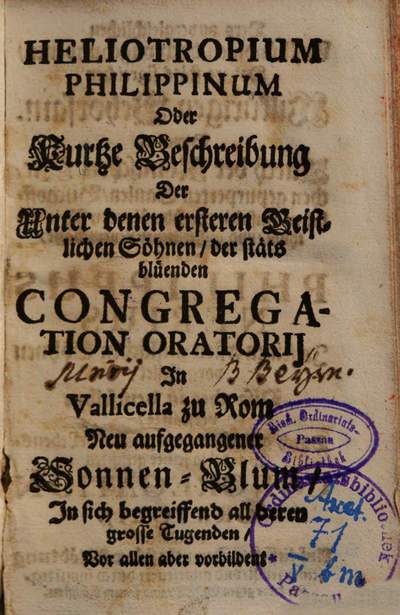 HELIOTROPIUM
PHILIPPINUM
Oder
Kurtze Beschreibung
Der
Unter denen ersteren Geist-
lichen Söhnen / der stäts
blüenden
CONGREGA-
TION ORATORIJ
In
Vallicella zu Rom
Neu aufgegangener
Sonnen-Blum /
In sich begreiffend all deren
grosse Tugenden /
Vor allen aber vorbildent
Bisch. Ordinariats-
Passau
Bibliothek
Ascet.
71